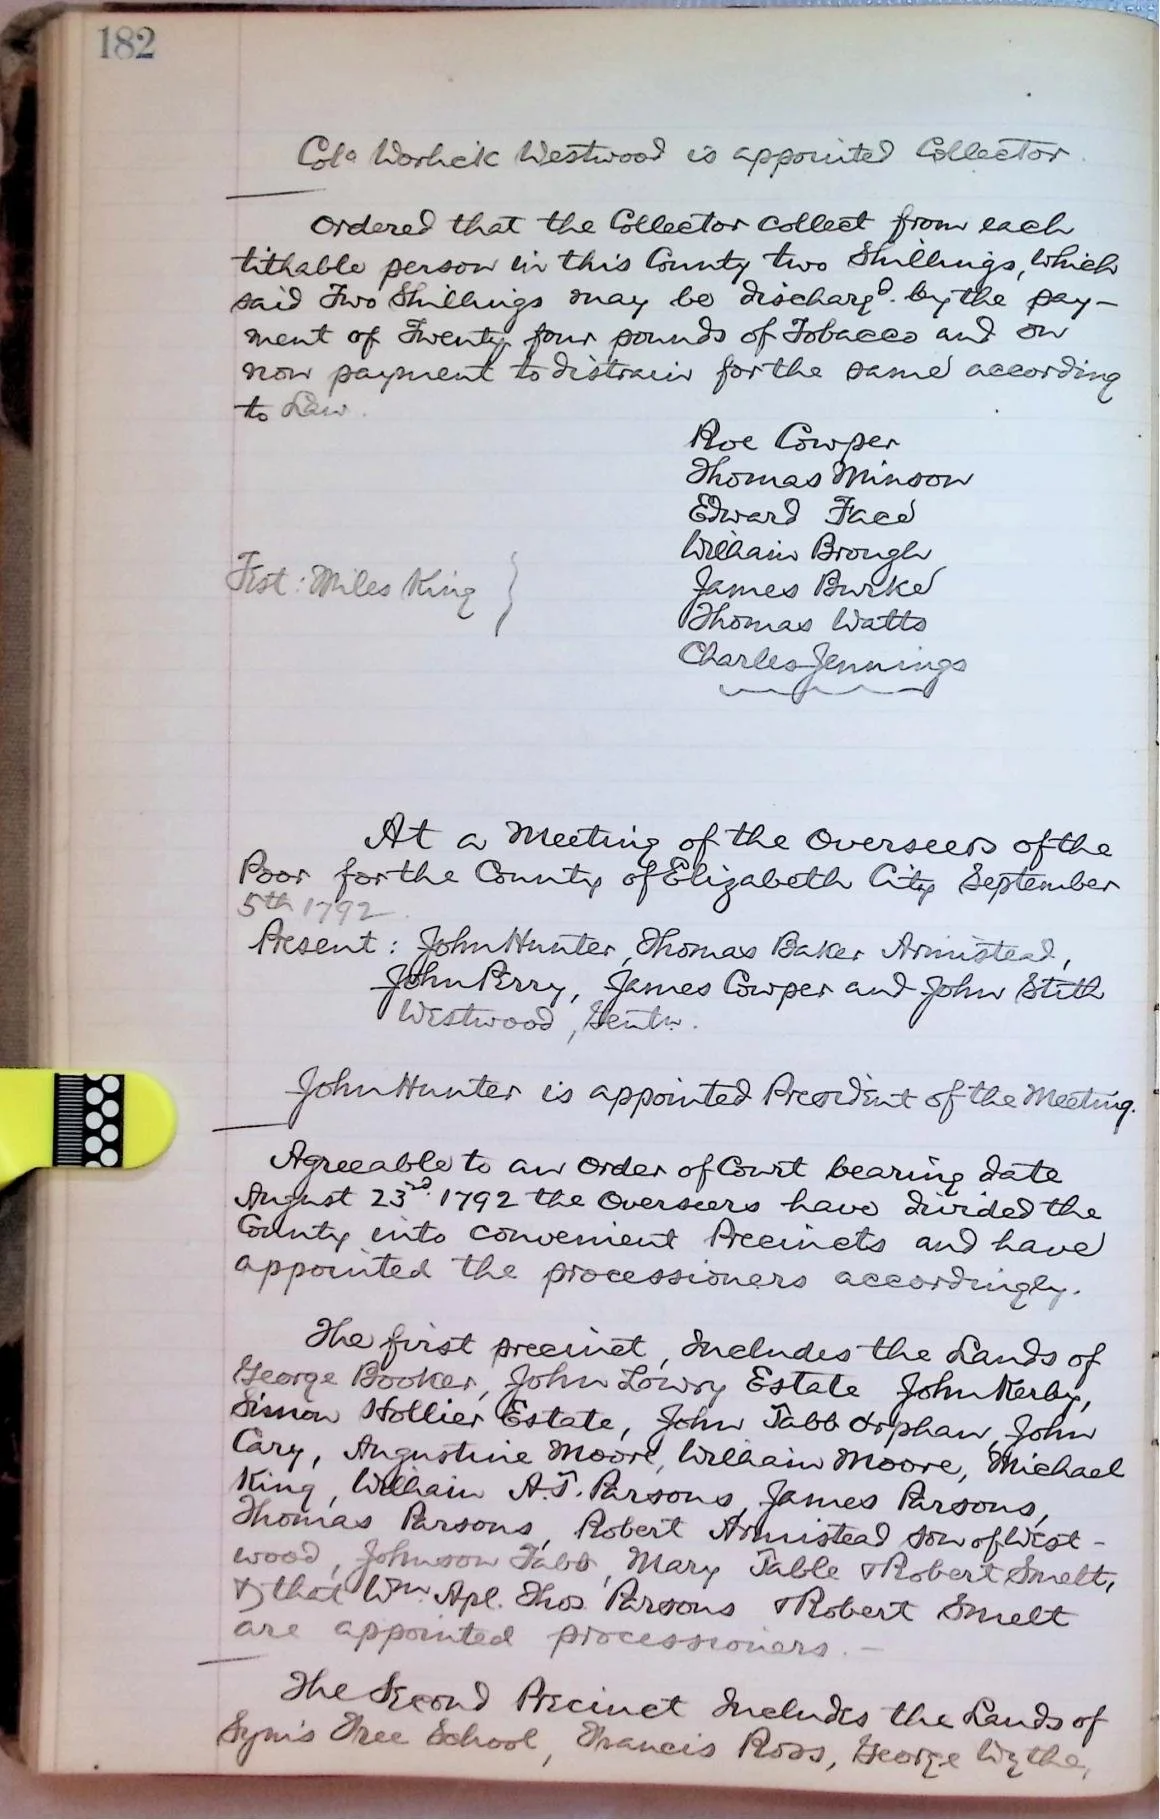 182
Colo Worlick Westwood is appointed Collector.
Ordered that the Collector collect from each
tithable person in this County two Shillings, which
said Two Shillings may be dischargd. by the pay-
ment of Twenty four pounds of Tobacco and on
non payment to distrain for the same according
to Law.
Roe Cowper
Thomas Minson
Edward Face
William Brough
Test: Miles King }
James Burke
Thomas Watts
Charles Jennings
At a Meeting of the Overseers of the
Poor for the County of Elizabeth City September
5th 1792.
Present: John Hunter, Thomas Baker Armistead,
John Perry, James Cowper and John Stith
Westwood, Gentn.
John Hunter is appointed President of the Meeting.
Agreeable to an Order of Court bearing date
August 23rd. 1792 the Overseers have divided the
County into convenient Precincts and have
appointed the processioners accordingly.
The first precinct, Includes the Lands of
George Booker, John Lowry Estate John Kerby,
Simon Hollier Estate, John Tabb Orphan, John
Cary, Augustine Moore, William Moore, Michael
King, William A.T. Parsons, James Parsons,
Thomas Parsons, Robert Armistead son of West-
wood, Johnson Tabb, Mary Table & Robert Smelt,
& that Wm. Apl. Thos Parsons & Robert Smelt
are appointed processioners. -
The Second Precinct Includes the Lands of
Sym's Free School, Francis Ross, George Wythe,